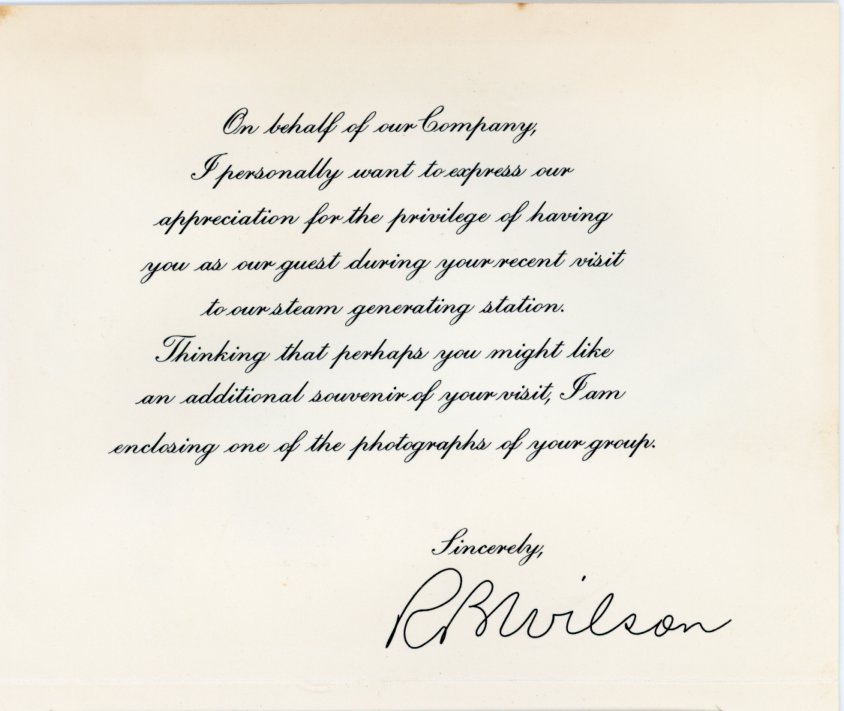 On behalf of our Company,
I personally want to express our
appreciation for the privilege of having
you as our guest during your recent visit
to our steam generating station.
Thinking that perhaps you might like
an additional souvenir of your visit, I am
enclosing one of the photographs of your group.
Sincerely,
R B Wilson